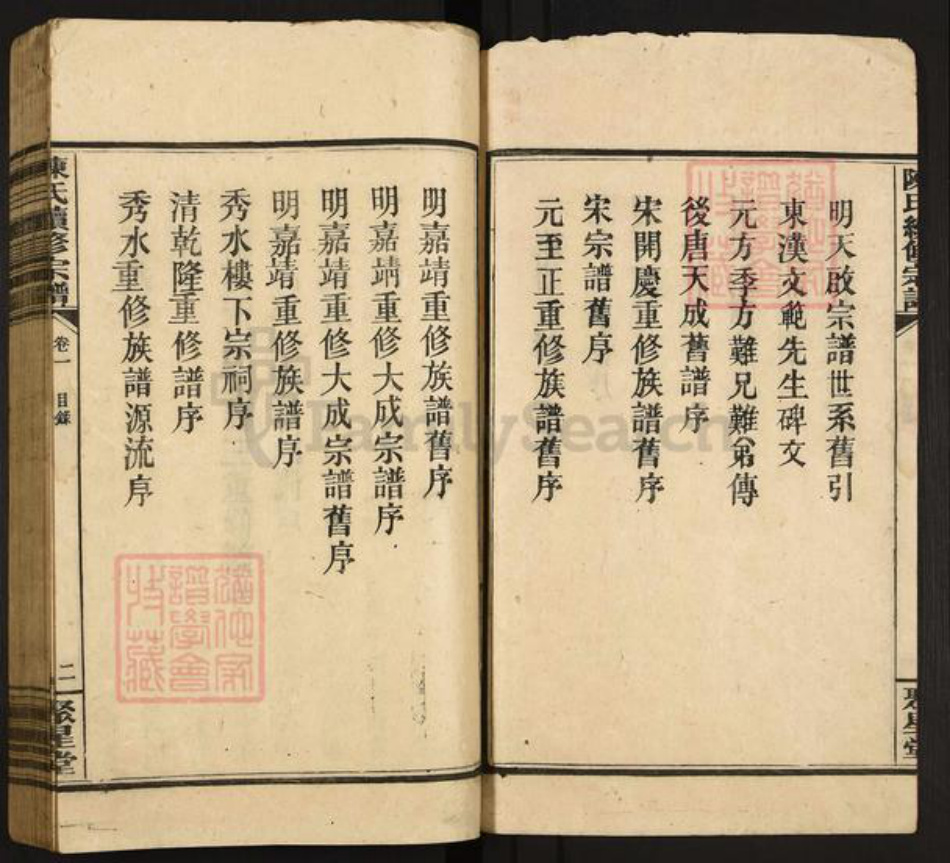 明天啟宗譜世系舊引
東漢文範先生碑文
元方季方難兄難弟傳
後唐天成舊譜序
宋開慶重修族譜舊序
宋宗譜舊序
元至正重修族譜舊序
明嘉靖重修族譜舊序
明嘉靖重修大成宗譜序
明嘉靖重修大成宗譜舊序
明嘉靖重修族譜序
秀水樓下宗祠序
清乾隆重修譜序
秀水重修族譜源流序
陳氏續修宗譜
聚星堂
陳氏續修宗譜
卷一
目錄
二
聚星堂
譜學會
FamilySearch